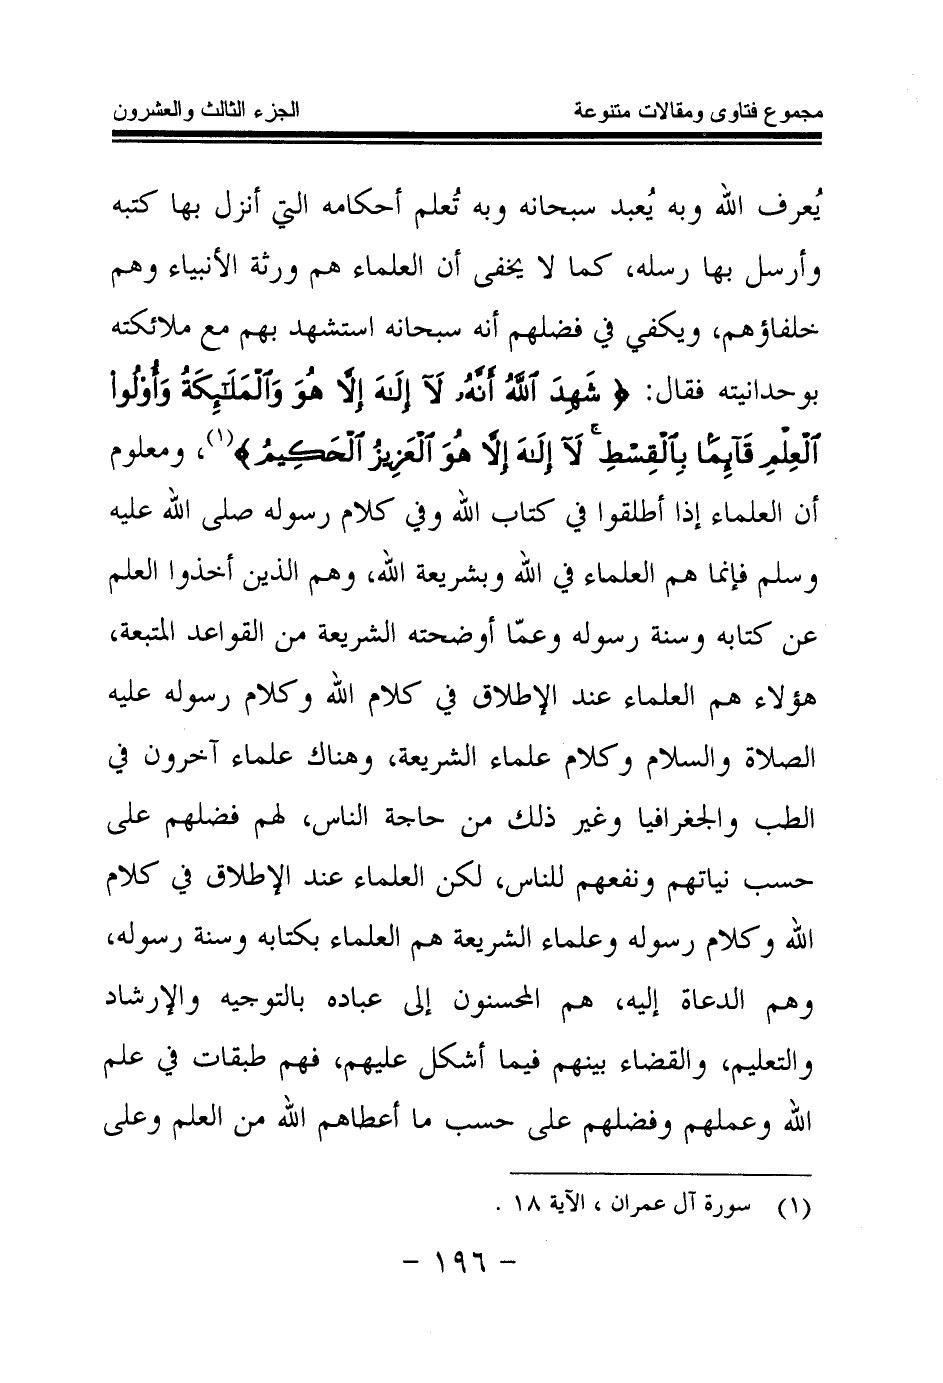 مجموع فتاوى ومقالات متنوعة الجزء الثالث والعشرون
يُعرف الله وبه يُعبد سبحانه وبه تُعلم أحكامه التي أنزل بها كتبه
وأرسل بها رسله، كما لا يخفى أن العلماء هم ورثة الأنبياء وهم
خلفاؤهم، ويكفي في فضلهم أنه سبحانه استشهد بهم مع ملائكته
بوحدانيته فقال: ﴿ شَهِدَ ٱللَّهُ أَنَّهُۥ لَآ إِلَٰهَ إِلَّا هُوَ وَٱلْمَلَٰٓئِكَةُ وَأُوْلُواْ
ٱلْعِلْمِ قَآئِمًۢا بِٱلْقِسْطِ ۚ لَآ إِلَٰهَ إِلَّا هُوَ ٱلْعَزِيزُ ٱلْحَكِيمُ ﴾(١)، ومعلوم
أن العلماء إذا أطلقوا في كتاب الله وفي كلام رسوله صلى الله عليه
وسلم فإنما هم العلماء في الله وبشريعة الله، وهم الذين أخذوا العلم
عن كتابه وسنة رسوله وعمّا أوضحته الشريعة من القواعد المتبعة،
هؤلاء هم العلماء عند الإطلاق في كلام الله وكلام رسوله عليه
الصلاة والسلام وكلام علماء الشريعة، وهناك علماء آخرون في
الطب والجغرافيا وغير ذلك من حاجة الناس، لهم فضلهم على
حسب نياتهم ونفعهم للناس، لكن العلماء عند الإطلاق في كلام
الله وكلام رسوله وعلماء الشريعة هم العلماء بكتابه وسنة رسوله،
وهم الدعاة إليه، هم المحسنون إلى عباده بالتوجيه والإرشاد
والتعليم، والقضاء بينهم فيما أشكل عليهم، فهم طبقات في علم
الله وعملهم وفضلهم على حسب ما أعطاهم الله من العلم وعلى
(١) سورة آل عمران ، الآية ١٨ .
- ١٩٦ -